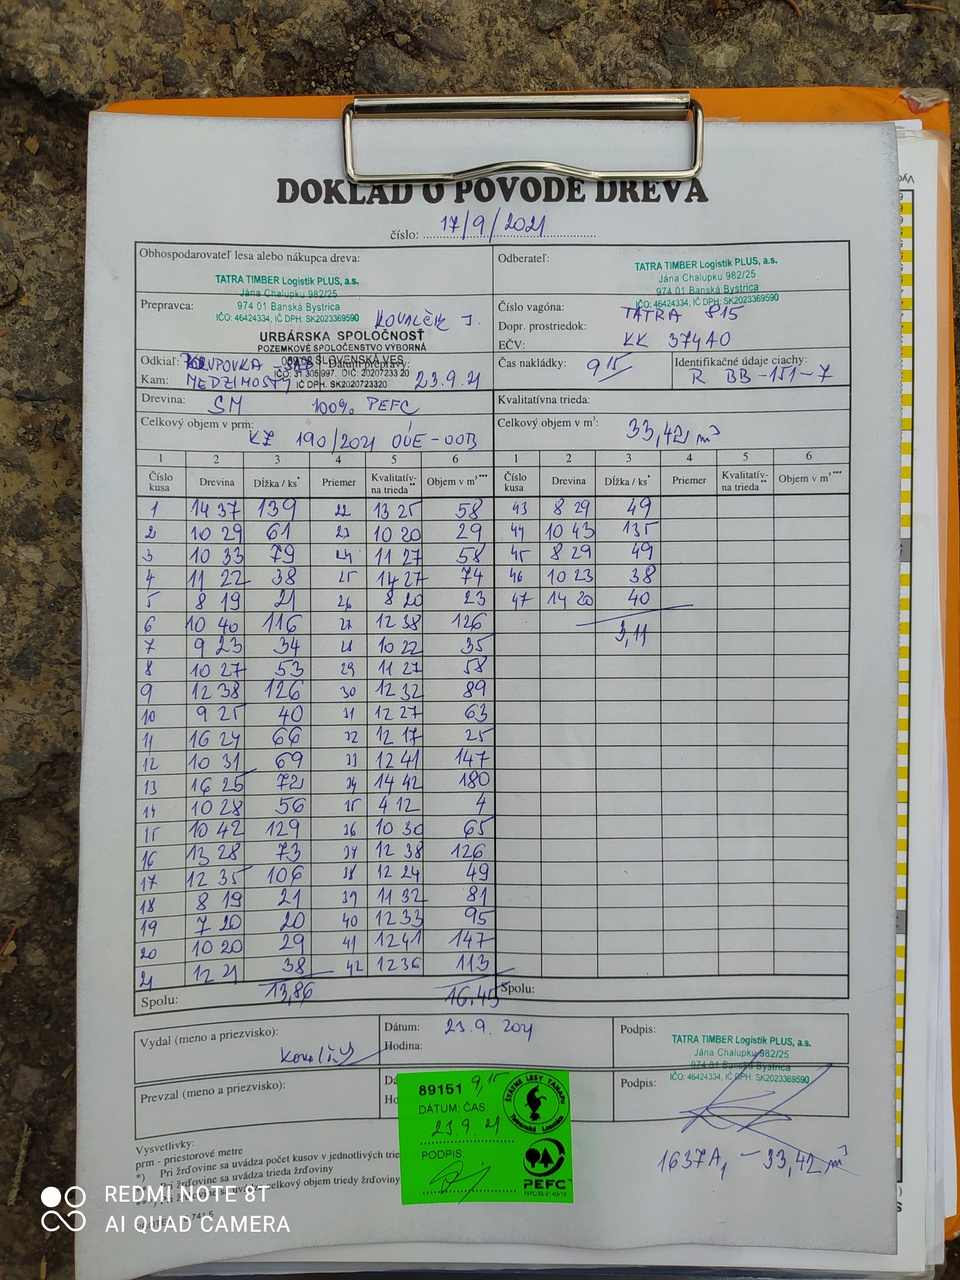 DOKLAD O PÔVODE DREVA
číslo: 17/9/2021
Obhospodarovateľ lesa alebo nákupca dreva:
TATRA TIMBER Logistik PLUS, a.s.
Jána Chalupku 982/25
974 01 Banská Bystrica
IČO: 46424334, IČ DPH: SK2023369590
Odberateľ:
TATRA TIMBER Logistik PLUS, a.s.
Jána Chalupku 982/25
974 01 Banská Bystrica
IČO: 46424334, IČ DPH: SK2023369590
Prepravca:
URBÁRSKA SPOLOČNOSŤ
POZEMKOVÉ SPOLOČENSTVO VÝBORNÁ
SLOVENSKÁ VES
IČ DPH: SK2020723320
Číslo vagóna: TATRA 815
Dopr. prostriedok:
EČV: KK 374AO
Odkiaľ:
Dátum prepravy: 23.9.21
Kam:
Čas nakládky: 9 15
Identifikačné údaje ciachy:
R BB-151-7
Drevina: SM 100% PEFC
Kvalitatívna trieda:
Celkový objem v prm: KZ 190/2021 OÚE-OOB
Celkový objem v m³: 33,42 m³
1 2 3 4 5 6 1 2 3 4 5 6
Číslo kusa Drevina Dĺžka / ks* Priemer Kvalitatív- na trieda** Objem v m³*** Číslo kusa Drevina Dĺžka / ks* Priemer Kvalitatív- na trieda** Objem v m³***
1 14 37 139 22 13 25 58 43 8 29 49
2 10 29 61 23 10 20 29 44 10 43 135
3 10 33 79 24 11 27 58 45 8 29 49
4 11 22 38 25 14 27 74 46 10 23 38
5 8 19 21 26 8 20 23 47 14 20 40
6 10 40 116 27 12 38 126 3,11
7 9 23 34 28 10 22 35
8 10 27 53 29 11 27 58
9 12 38 126 30 12 32 89
10 9 25 40 31 12 27 63
11 16 24 66 32 12 17 25
12 10 31 69 33 12 41 147
13 16 25 72 34 14 42 180
14 10 28 56 35 4 12 4
15 10 42 129 36 10 30 65
16 13 28 73 37 12 38 126
17 12 35 106 38 12 24 49
18 8 19 21 39 11 32 81
19 7 20 20 40 12 33 95
20 10 20 29 41 12 41 147
21 12 21 38 42 12 36 113
Spolu: 13,86 16,45 Spolu:
Vydal (meno a priezvisko):
Dátum: 23.9.2021
Hodina:
Podpis:
TATRA TIMBER Logistik PLUS, a.s.
Jána Chalupku 982/25
974 01 Banská Bystrica
IČO: 46424334, IČ DPH: SK2023369590
Prevzal (meno a priezvisko):
Podpis:
89151 9 15
DÁTUM, ČAS:
23 9 21
PODPIS:
ŠTÁTNE LESY TANAPu
Tatranská Lomnica
PEFC
1637A, - 33,42 m³
Vysvetlivky:
prm - priestorové metre
*) Pri žrďovine sa uvádza počet kusov v jednotlivých
Pri žrďovine sa uvádza trieda žrďoviny
celkový objem triedy žrďoviny
REDMI NOTE 8T
AI QUAD CAMERA